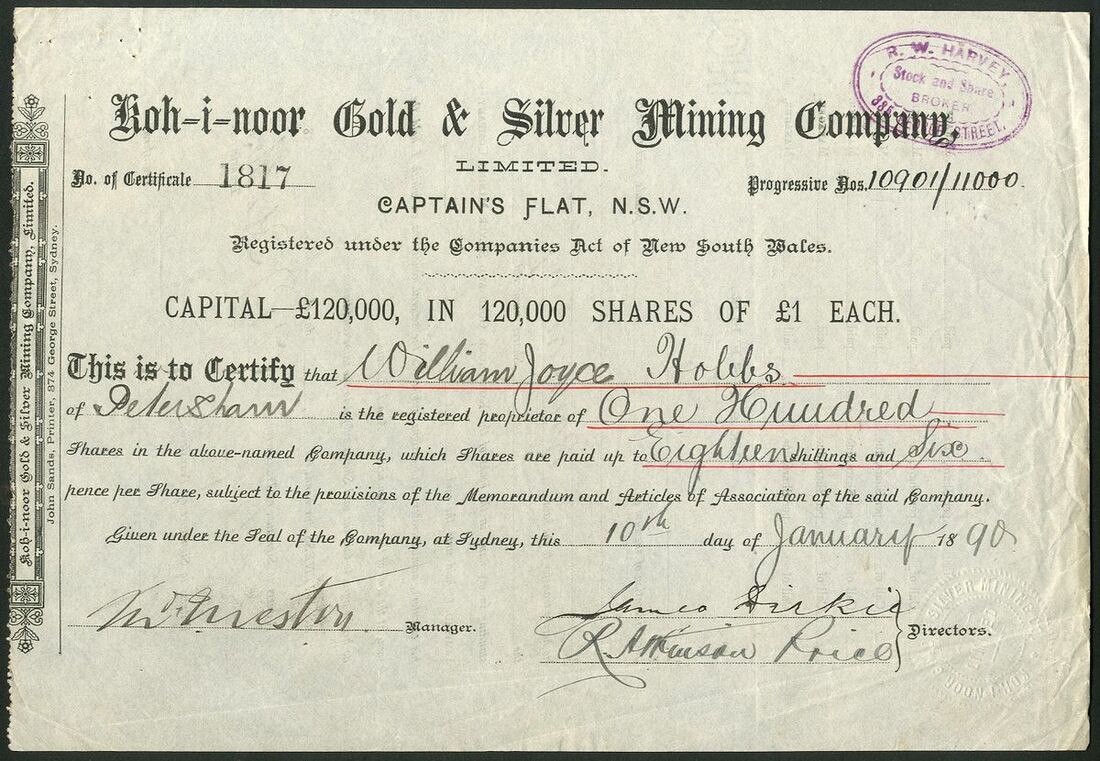 R. W. HARVEY,
Stock and Share
BROKER
STREET.
Koh-i-noor Gold & Silver Mining Company,
LIMITED.
No. of Certificate 1817
Progressive Nos. 10901/11000.
CAPTAIN'S FLAT, N.S.W.
Registered under the Companies Act of New South Wales.
CAPITAL—£120,000, IN 120,000 SHARES OF £1 EACH.
This is to Certify that William Joyce Hobbs
of Petersham is the registered proprietor of One Hundred
Shares in the above-named Company, which Shares are paid up to Eighteen shillings and Six
pence per Share, subject to the provisions of the Memorandum and Articles of Association of the said Company.
Given under the Seal of the Company, at Sydney, this 10th day of January 1890
Manager.
James
R. Atkinson Price
Directors.
SILVER MINING
KOH-I-NOOR
Koh-i-noor Gold & Silver Mining Company, Limited.
John Sands, Printer, 374 George Street, Sydney.